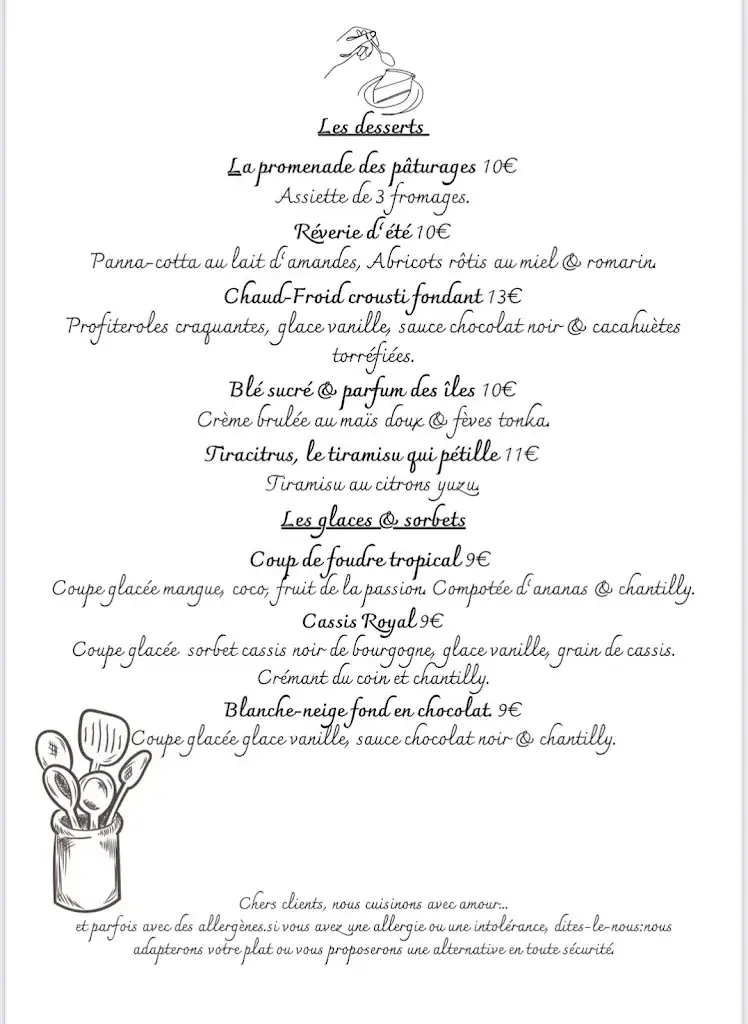 Les desserts
La promenade des pâturages 10€
Assiette de 3 fromages.
Réverie d'été 10€
Panna-cotta au lait d'amandes, Abricots rôtis au miel & romarin.
Chaud-Froid crousti fondant 13€
Profiteroles craquantes, glace vanille, sauce chocolat noir & cacahuètes
torréfiées.
Blé sucré & parfum des îles 10€
Crème brulée au maïs doux & fèves tonka.
Tiracitrus, le tiramisu qui pétille 11€
Tiramisu au citrons yuzu.
Les glaces & sorbets
Coup de foudre tropical 9€
Coupe glacée mangue, coco, fruit de la passion. Compotée d'ananas & chantilly.
Cassis Royal 9€
Coupe glacée sorbet cassis noir de bourgogne, glace vanille, grain de cassis.
Crémant du coin et chantilly.
Blanche-neige fond en chocolat. 9€
Coupe glacée glace vanille, sauce chocolat noir & chantilly.
Chers clients, nous cuisinons avec amour...
et parfois avec des allergènes.si vous avez une allergie ou une intolérance, dites-le-nous:nous
adapterons votre plat ou vous proposerons une alternative en toute sécurité.